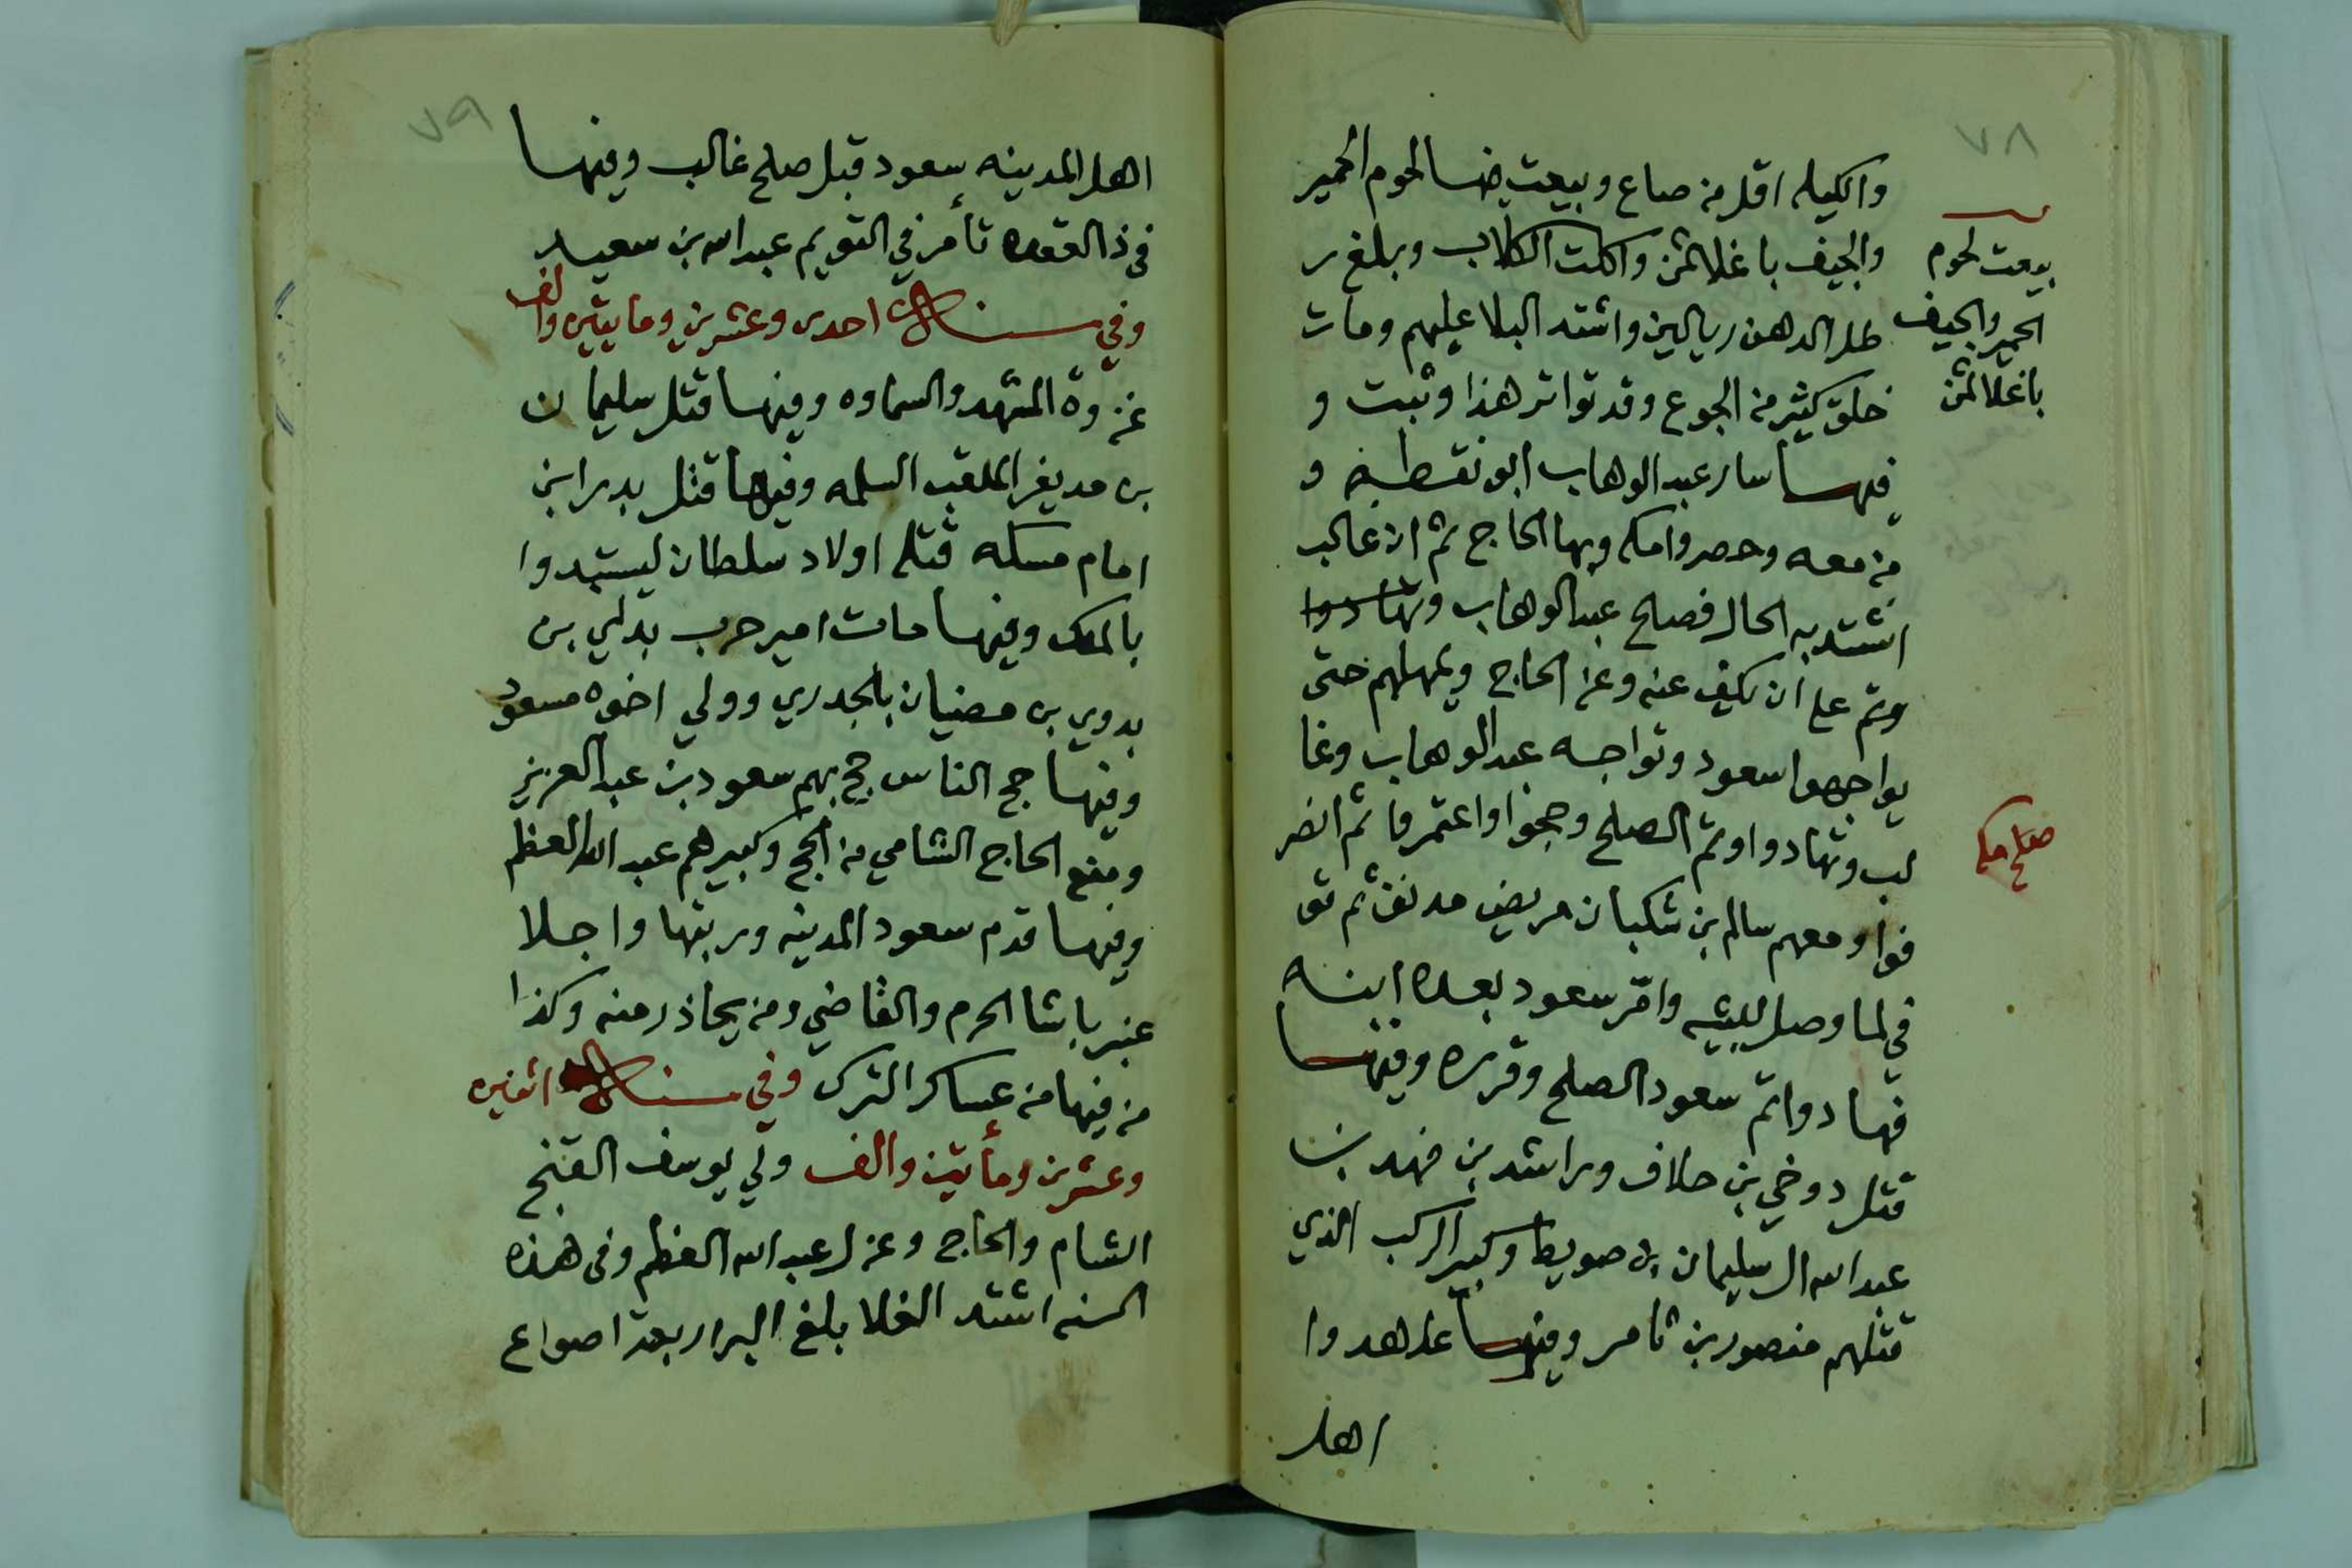 ٧٨
والكيله اقل من صاع وبيعت فيها لحوم الحمير
والجيف باغلا ثمن واكلت الكلاب وبلغ ر
طل الدهن ريالين واشتد البلا عليهم ومات
خلق كثير من الجوع وقد تواتر هذا وثبت و
فيها سار عبد الوهاب ابو نقطه و
من معه وحصروا مكه وبها الحاج ثم ان غالب
اشتد به الحال فصلح عبد الوهاب وتهادوا
وتم على ان يكف عنه وعن الحاج ويمهلهم حتى
يواجهوا سعود وتواجه عبد الوهاب وغا
لب وتهادوا وتم الصلح وحجوا واعتمروا ثم انصر
فوا ومعهم سالم بن شكبان مريض مدنف ثم تو
في لما وصل لبيشه وامّر سعود بعده ابنه
فهاد واتم سعود الصلح وقرره وفيها
قتل دوخي بن حلاف وراشد بن فهد بن
عبد الله ال سليمان بن صويط وكبير الركب الذي
قتلهم منصور بن ثامر وفيها عاهدوا
اهل
بيعت لحوم
الحمير والجيف
باغلا ثمن
صلح مكه
٧٩
اهل المدينه سعود قبل صلح غالب وفيها
في ذا القعده تأمر في التويم عبد الله بن سعيد
وفي سنة احدى وعشرين ومايتين والف
غزوة المشهد والسماوه وفيها قتل سليمان
بن مديغر الملقب السلمه وفيها قتل بدر ابن
امام مسكه قتله اولاد سلطان ليستبدوا
بالملك وفيها مات امير حرب بداي بن
بدوي بن مضيان بالجدري وولي اخوه مسعود
وفيها حج الناس حج بهم سعود بن عبد العزيز
ومنع الحاج الشامي من الحج وكبيرهم عبد الله العظم
وفيها قدم سعود المدينه وربتها واجلا
عنبر باشا الحرم والقاضي ومن يحاذر منه وكذا
من فيها من عساكر الترك وفي سنة اثنين
وعشرين ومأيتين والف ولي يوسف القنج
الشام والحاج وعزل عبد الله العظم وفي هذه
السنه اشتد الغلا بلغ البر اربعة اصواع